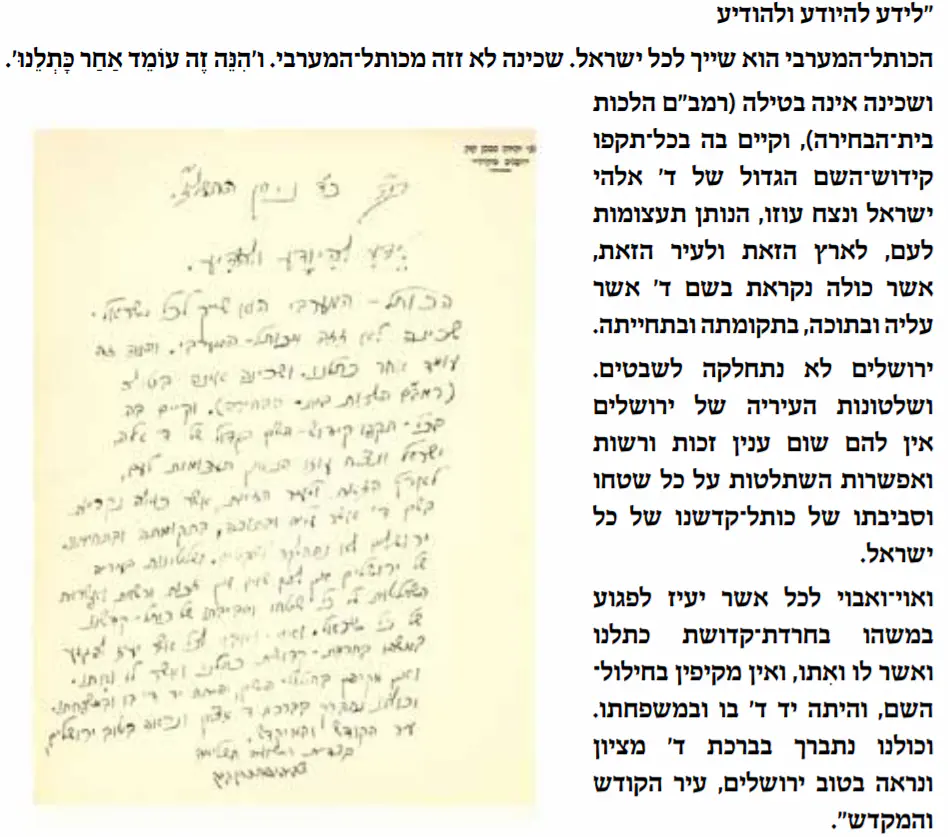 "לידע להיודע ולהודיע
הכותל־המערבי הוא שייך לכל ישראל. שכינה לא זזה מכותל־המערבי. ו'הִנֵּה זֶה עוֹמֵד אַחַר כָּתְלֵנוּ'.
ושכינה אינה בטילה (רמב"ם הלכות
בית־הבחירה), וקיים בה בכל־תקפו
קידוש־השם הגדול של ד' אלהי
ישראל ונצח עוזו, הנותן תעצומות
לעם, לארץ הזאת ולעיר הזאת,
אשר כולה נקראת בשם ד' אשר
עליה ובתוכה, בתקומתה ובתחייתה.
ירושלים לא נתחלקה לשבטים.
ושלטונות העיריה של ירושלים
אין להם שום ענין זכות ורשות
ואפשרות השתלטות על כל שטחו
וסביבתו של כותל־קדשנו של כל
ישראל.
ואוי־ואבוי לכל אשר יעיז לפגוע
במשהו בחרדת־קדושת כתלנו
ואשר לו ואִתו, ואין מקיפין בחילול־
השם, והיתה יד ד' בו ובמשפחתו.
וכולנו נתברך בברכת ד' מציון
ונראה בטוב ירושלים, עיר הקודש
והמקדש".
כ"ד ניסן
לידע להיודע ולהודיע.
הכותל־המערבי הוא שייך לכל ישראל.
שכינה לא זזה מכותל־המערבי. והנה זה
עומד אחר כתלנו. ושכינה אינה בטילה
(רמב"ם הלכות בית־הבחירה). וקיים בה
בכל־תקפו קידוש־השם הגדול של ד' אלהי
ישראל ונצח עוזו הנותן תעצומות לעם,
לארץ הזאת ולעיר הזאת, אשר כולה נקראת
בשם ד' אשר עליה ובתוכה, בתקומתה ובתחייתה.
ירושלים לא נתחלקה לשבטים. ושלטונות העיריה
של ירושלים אין להם שום ענין זכות ורשות ואפשרות
השתלטות על כל שטחו וסביבתו של כותל־קדשנו
של כל ישראל. ואוי־ואבוי לכל אשר יעיז לפגוע
במשהו בחרדת־קדושת כתלנו ואשר לו ואתו.
ואין מקיפין בחילול־השם, והיתה יד ד' בו ובמשפחתו.
וכולנו נתברך בברכת ד' מציון ונראה בטוב ירושלים,
עיר הקודש והמקדש.